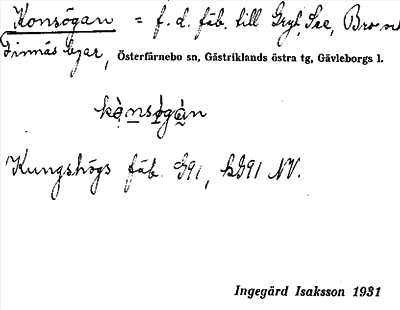 Konsögan = f. d. fäb. till Gryt, See, Bro o.
Finnäs byar, Österfärnebo sn, Gästriklands östra tg, Gävleborgs l.
kònsı̣gàn
Kungshögs fäb. G91, kG91 NV.
Ingegärd Isaksson 1931